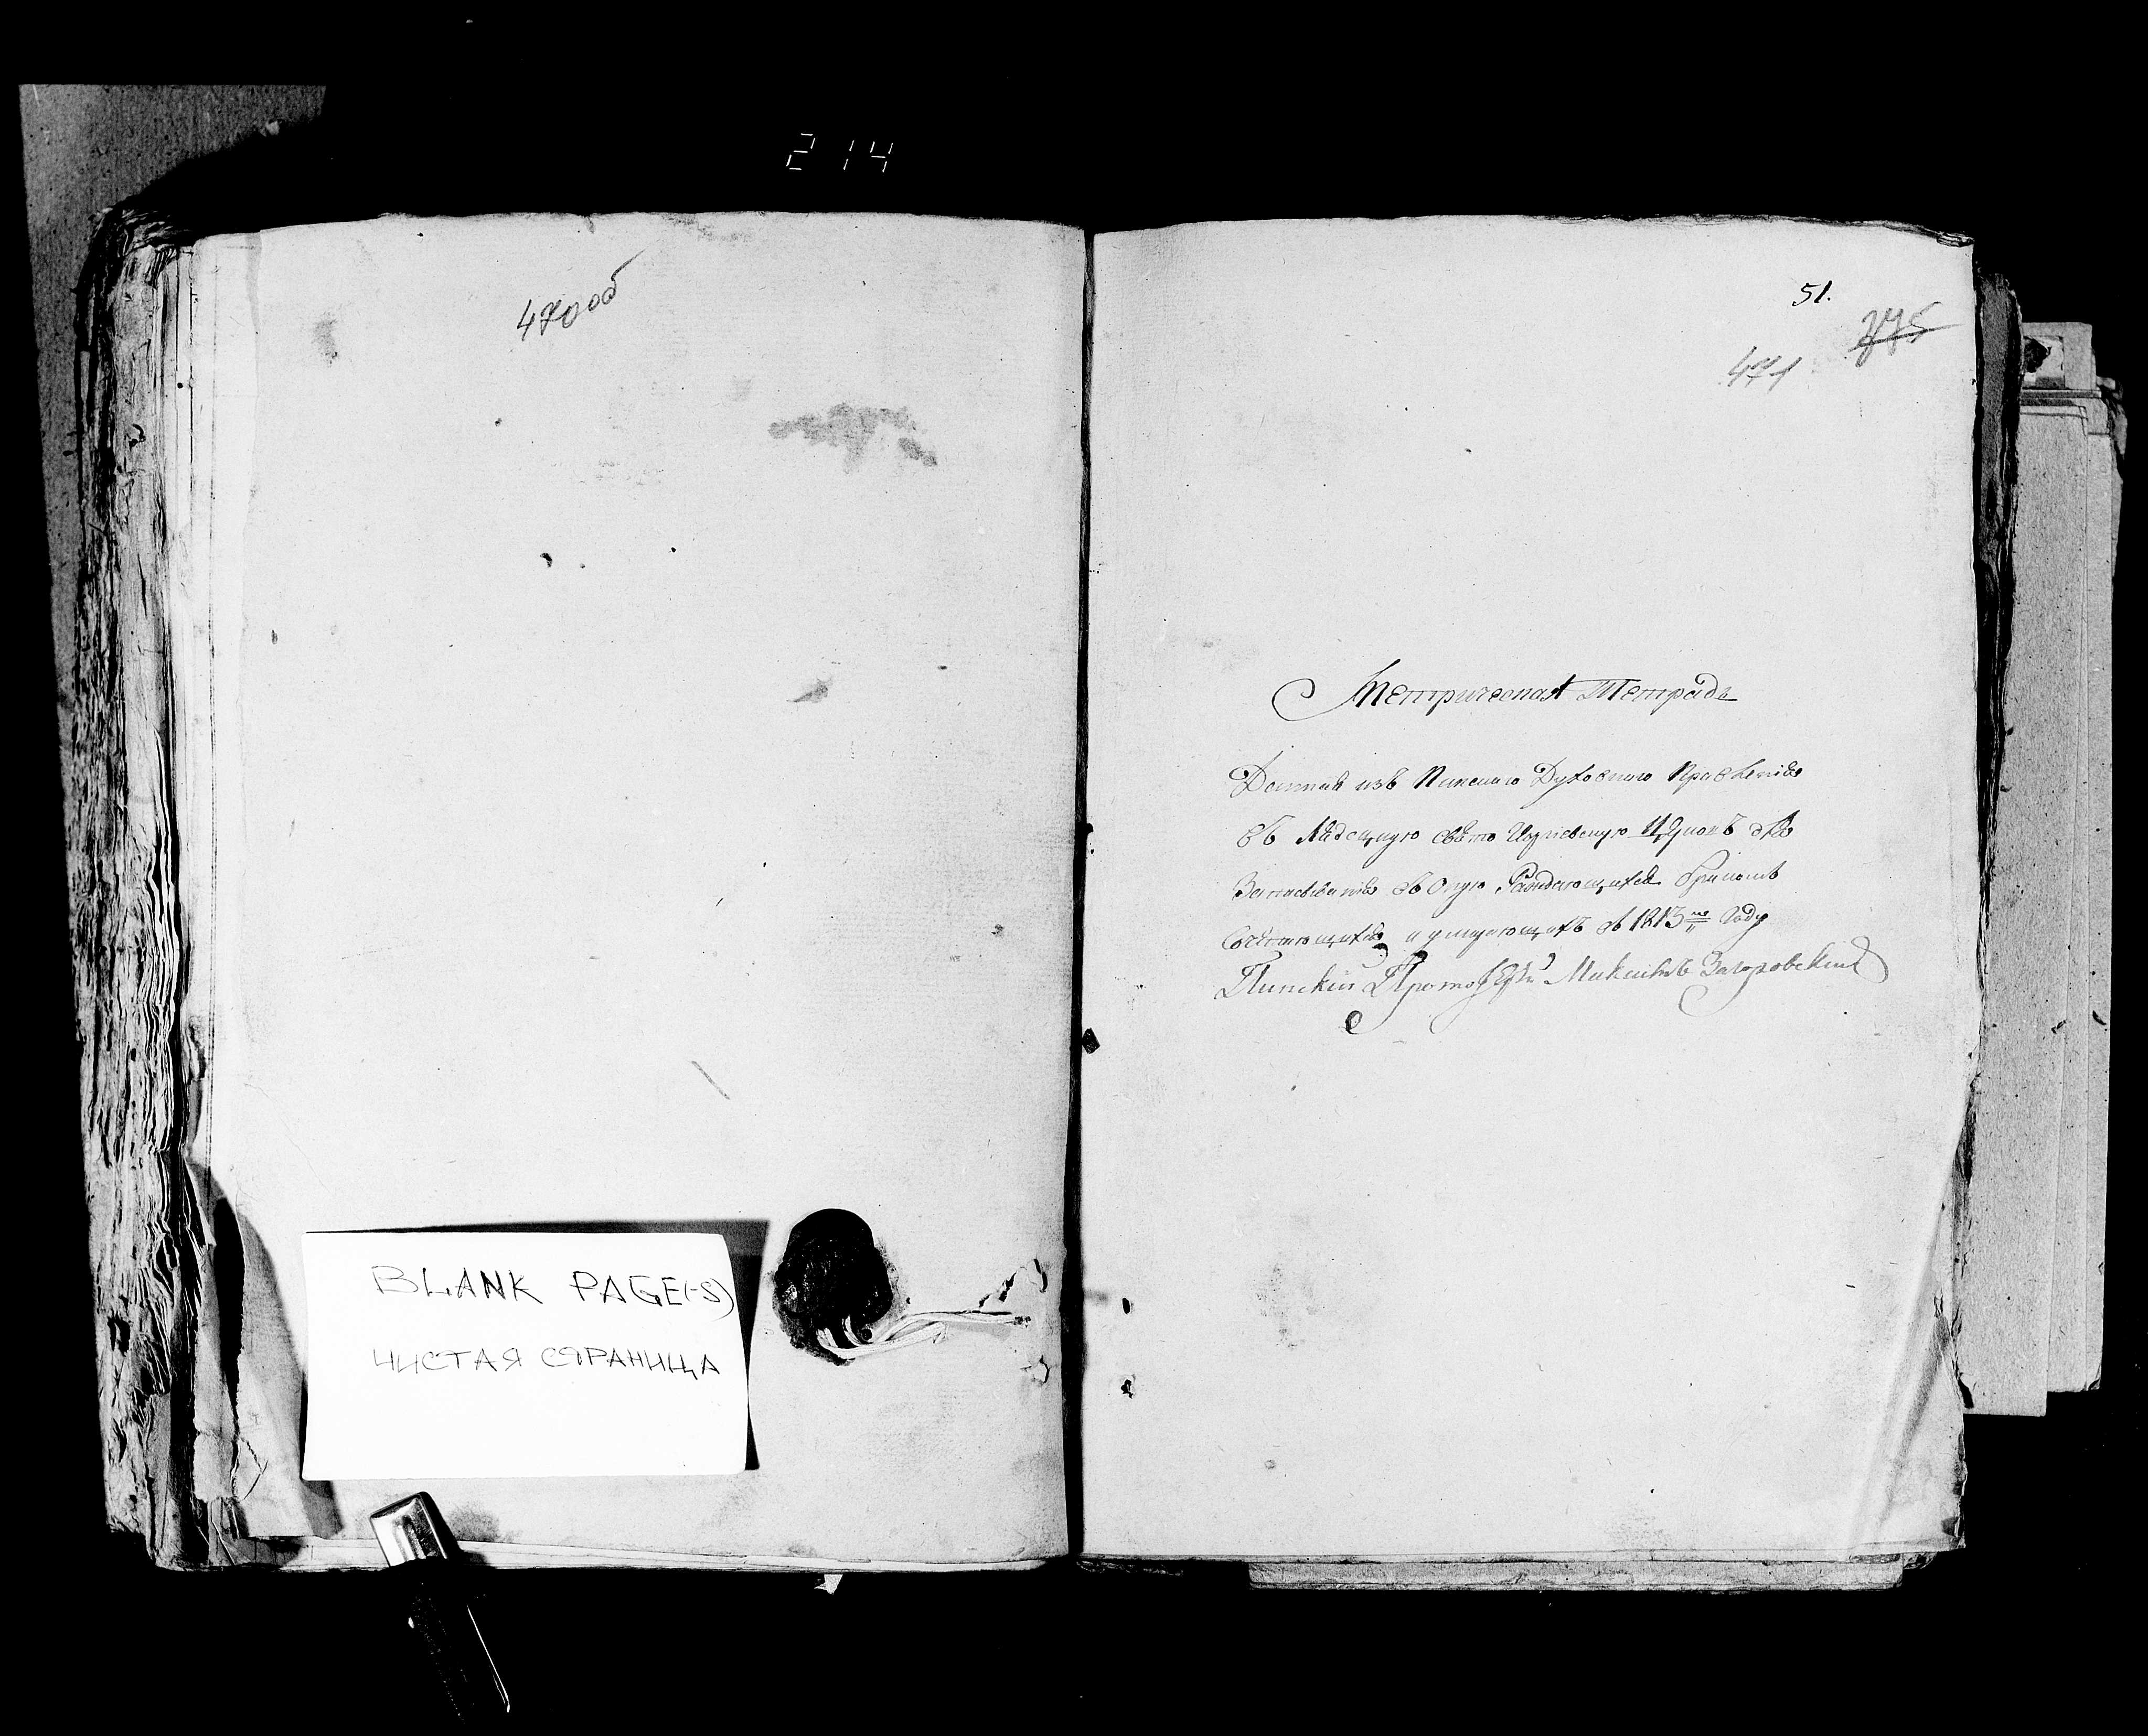 214
470 об
51.
775
471
Метрическая Тетрадь
Данная изъ Пинскаго Духовнаго Правленія
въ свято церковь для
Записыванія въ оную Раждающихся бракомъ
Сочетающихся и умирающихъ въ 1813мъ Году
Пинскій Протоіерей Загоровскій
BLANK PAGE(-S)
ЧИСТАЯ СТРАНИЦА